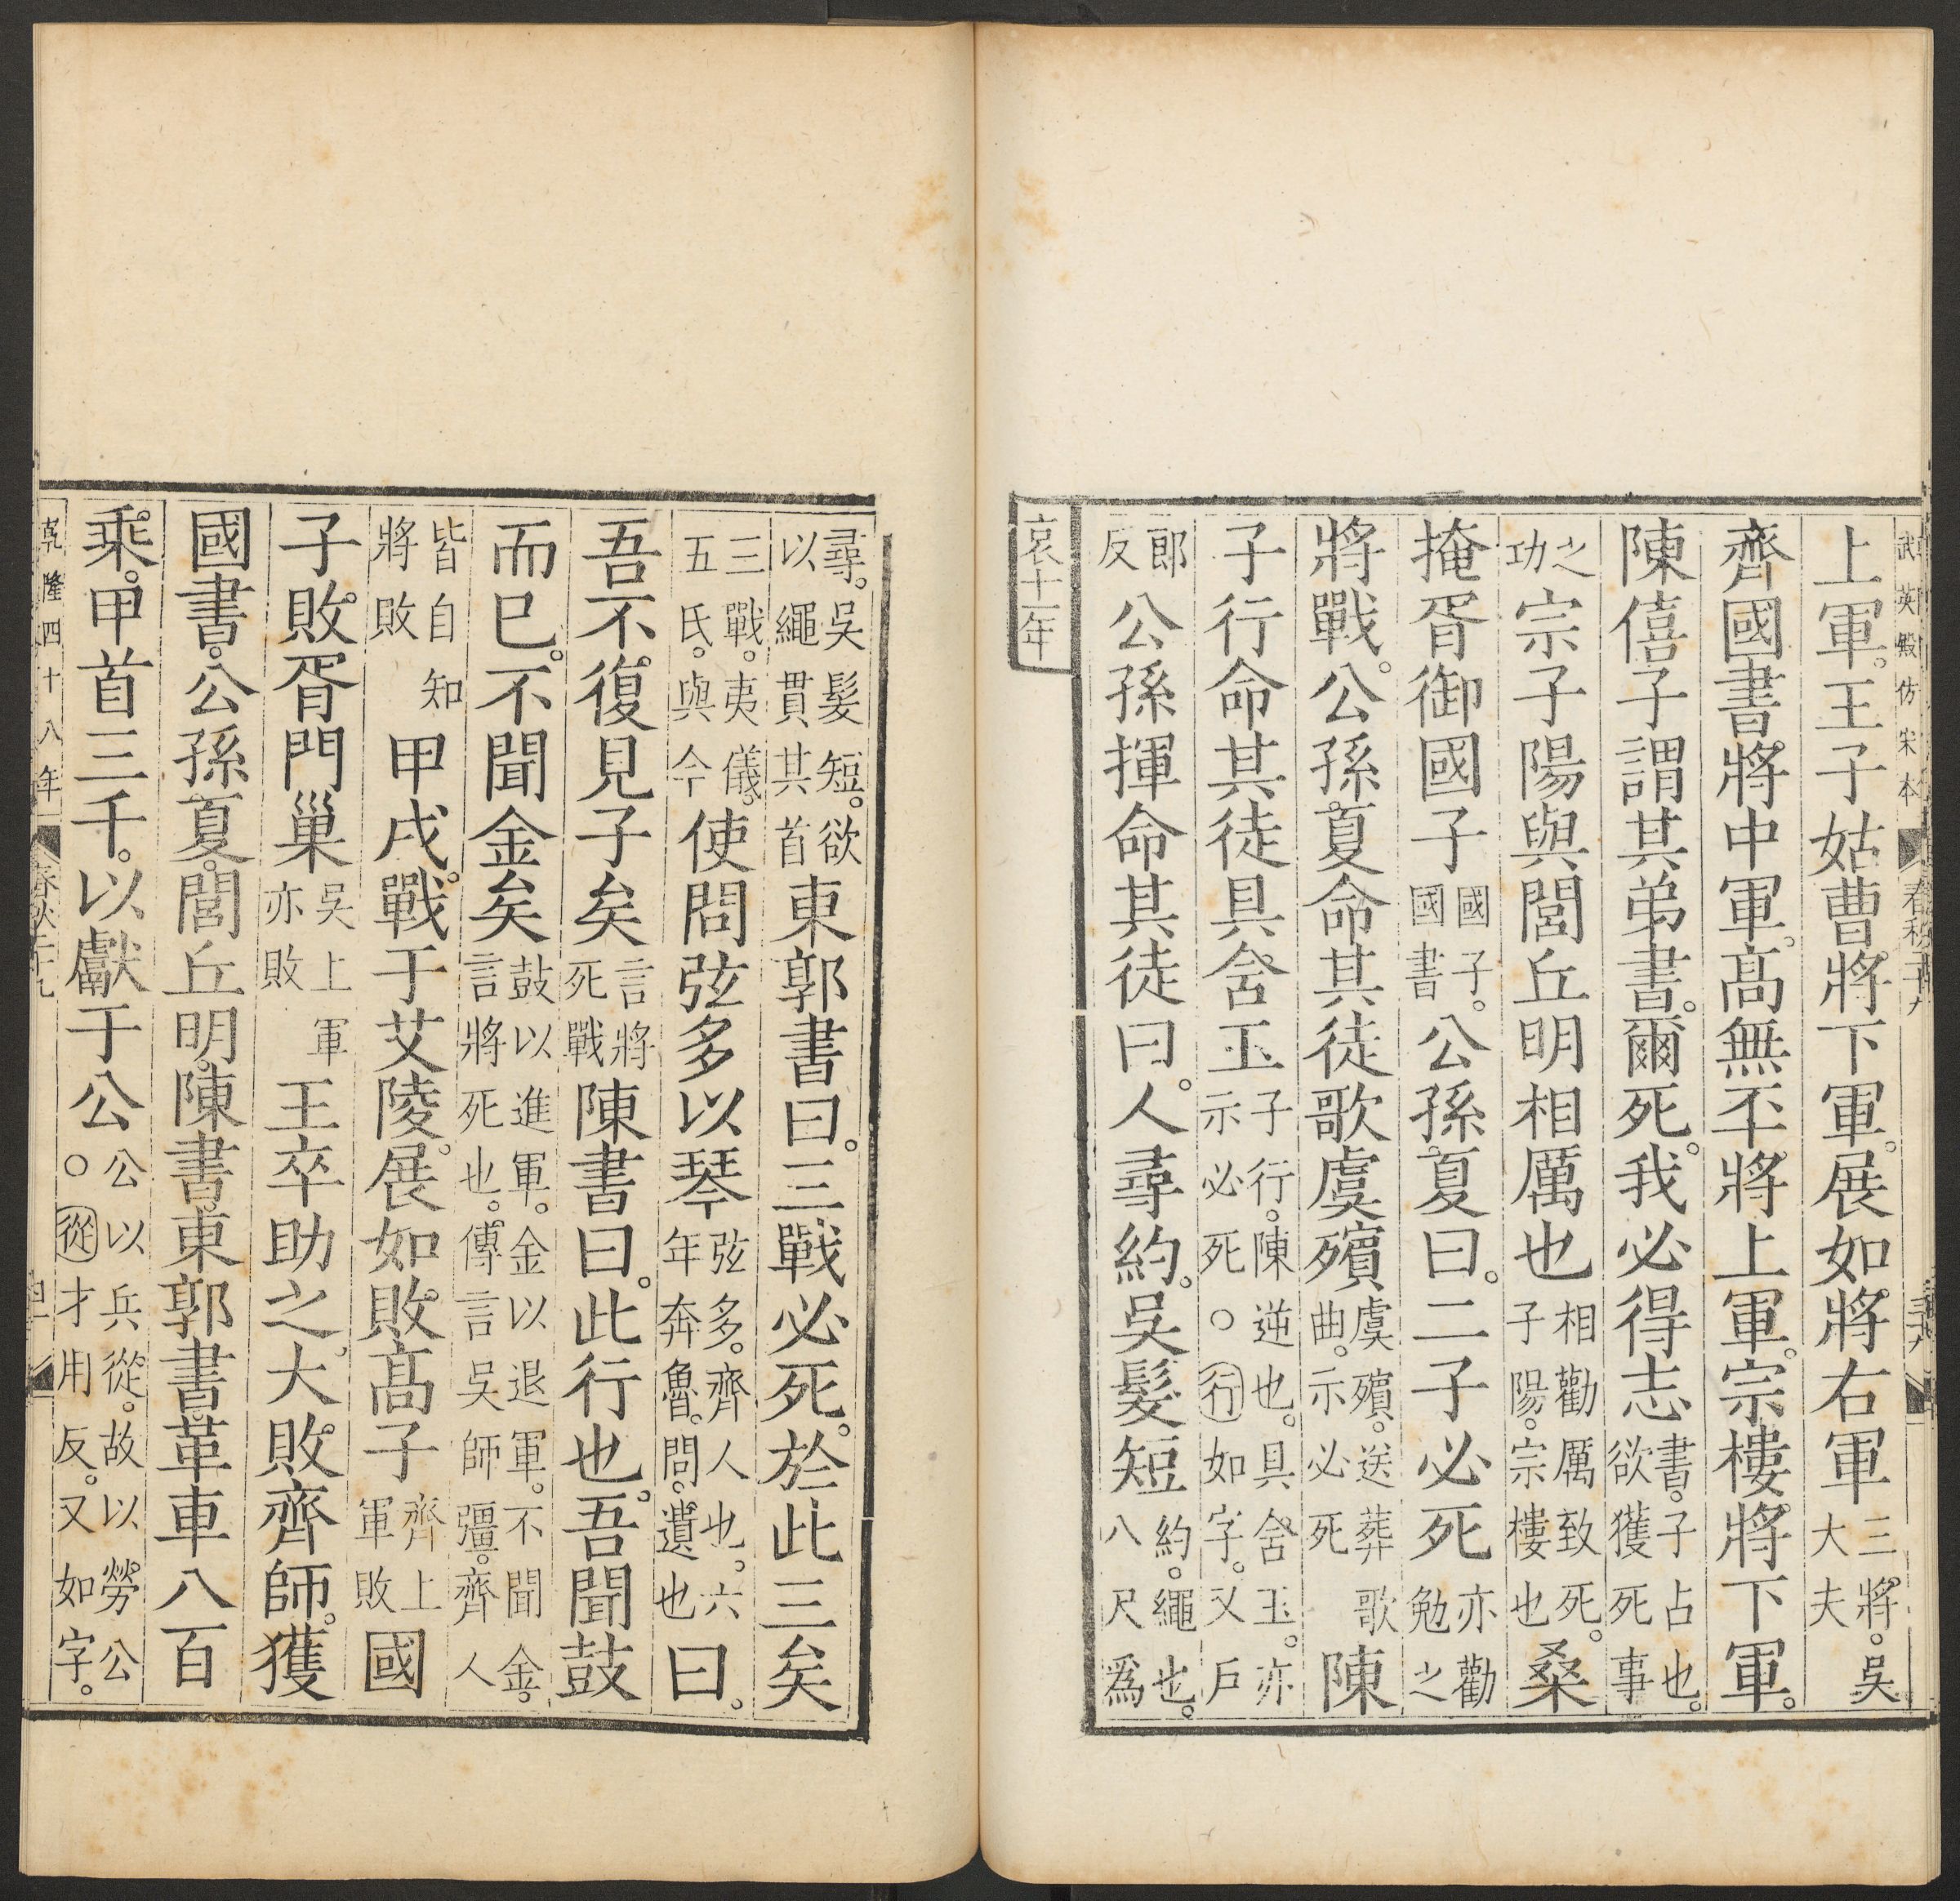 武英殿仿宋本 春秋二十九
上軍。王子姑曹將下軍。展如將右軍三將。吳大夫
齊國書將中軍。高無丕將上軍。宗樓將下軍。
陳僖子謂其弟書。爾死。我必得志書。子占也。欲獲死事
之功宗子陽與閭丘明相厲也相勸厲致死。子陽。宗樓也。桑
掩胥御國子國子。國書公孫夏曰。二子必死亦勸勉之
將戰。公孫夏命其徒歌虞殯虞殯。送葬歌曲。示必死陳
子行命其徒具含玉子行。陳逆也。具含玉。亦示必死○行如字。又戶
郎反公孫揮命其徒曰。人尋約。吳髮短約。繩也。八尺爲
哀十一年
尋。吳髮短。欲以繩貫其首東郭書曰。三戰必死。於此三矣
三戰。夷儀。五氏。與今使問弦多以琴弦多。齊人也。六年奔魯。問。遺也曰。
吾不復見子矣言將死戰陳書曰。此行也。吾聞鼓
而已。不聞金矣鼓以進軍。金以退軍。不聞金。言將死也。傳言吳師彊。齊人
皆自知將敗甲戌。戰于艾陵。展如敗高子齊上軍敗國
子敗胥門巢吳上軍亦敗王卒助之。大敗齊師。獲
國書。公孫夏。閭丘明。陳書。東郭書。革車八百
乘。甲首三千。以獻于公公以兵從。故以勞公。○從才用反。又如字。
乾隆四十八年 春秋二十九